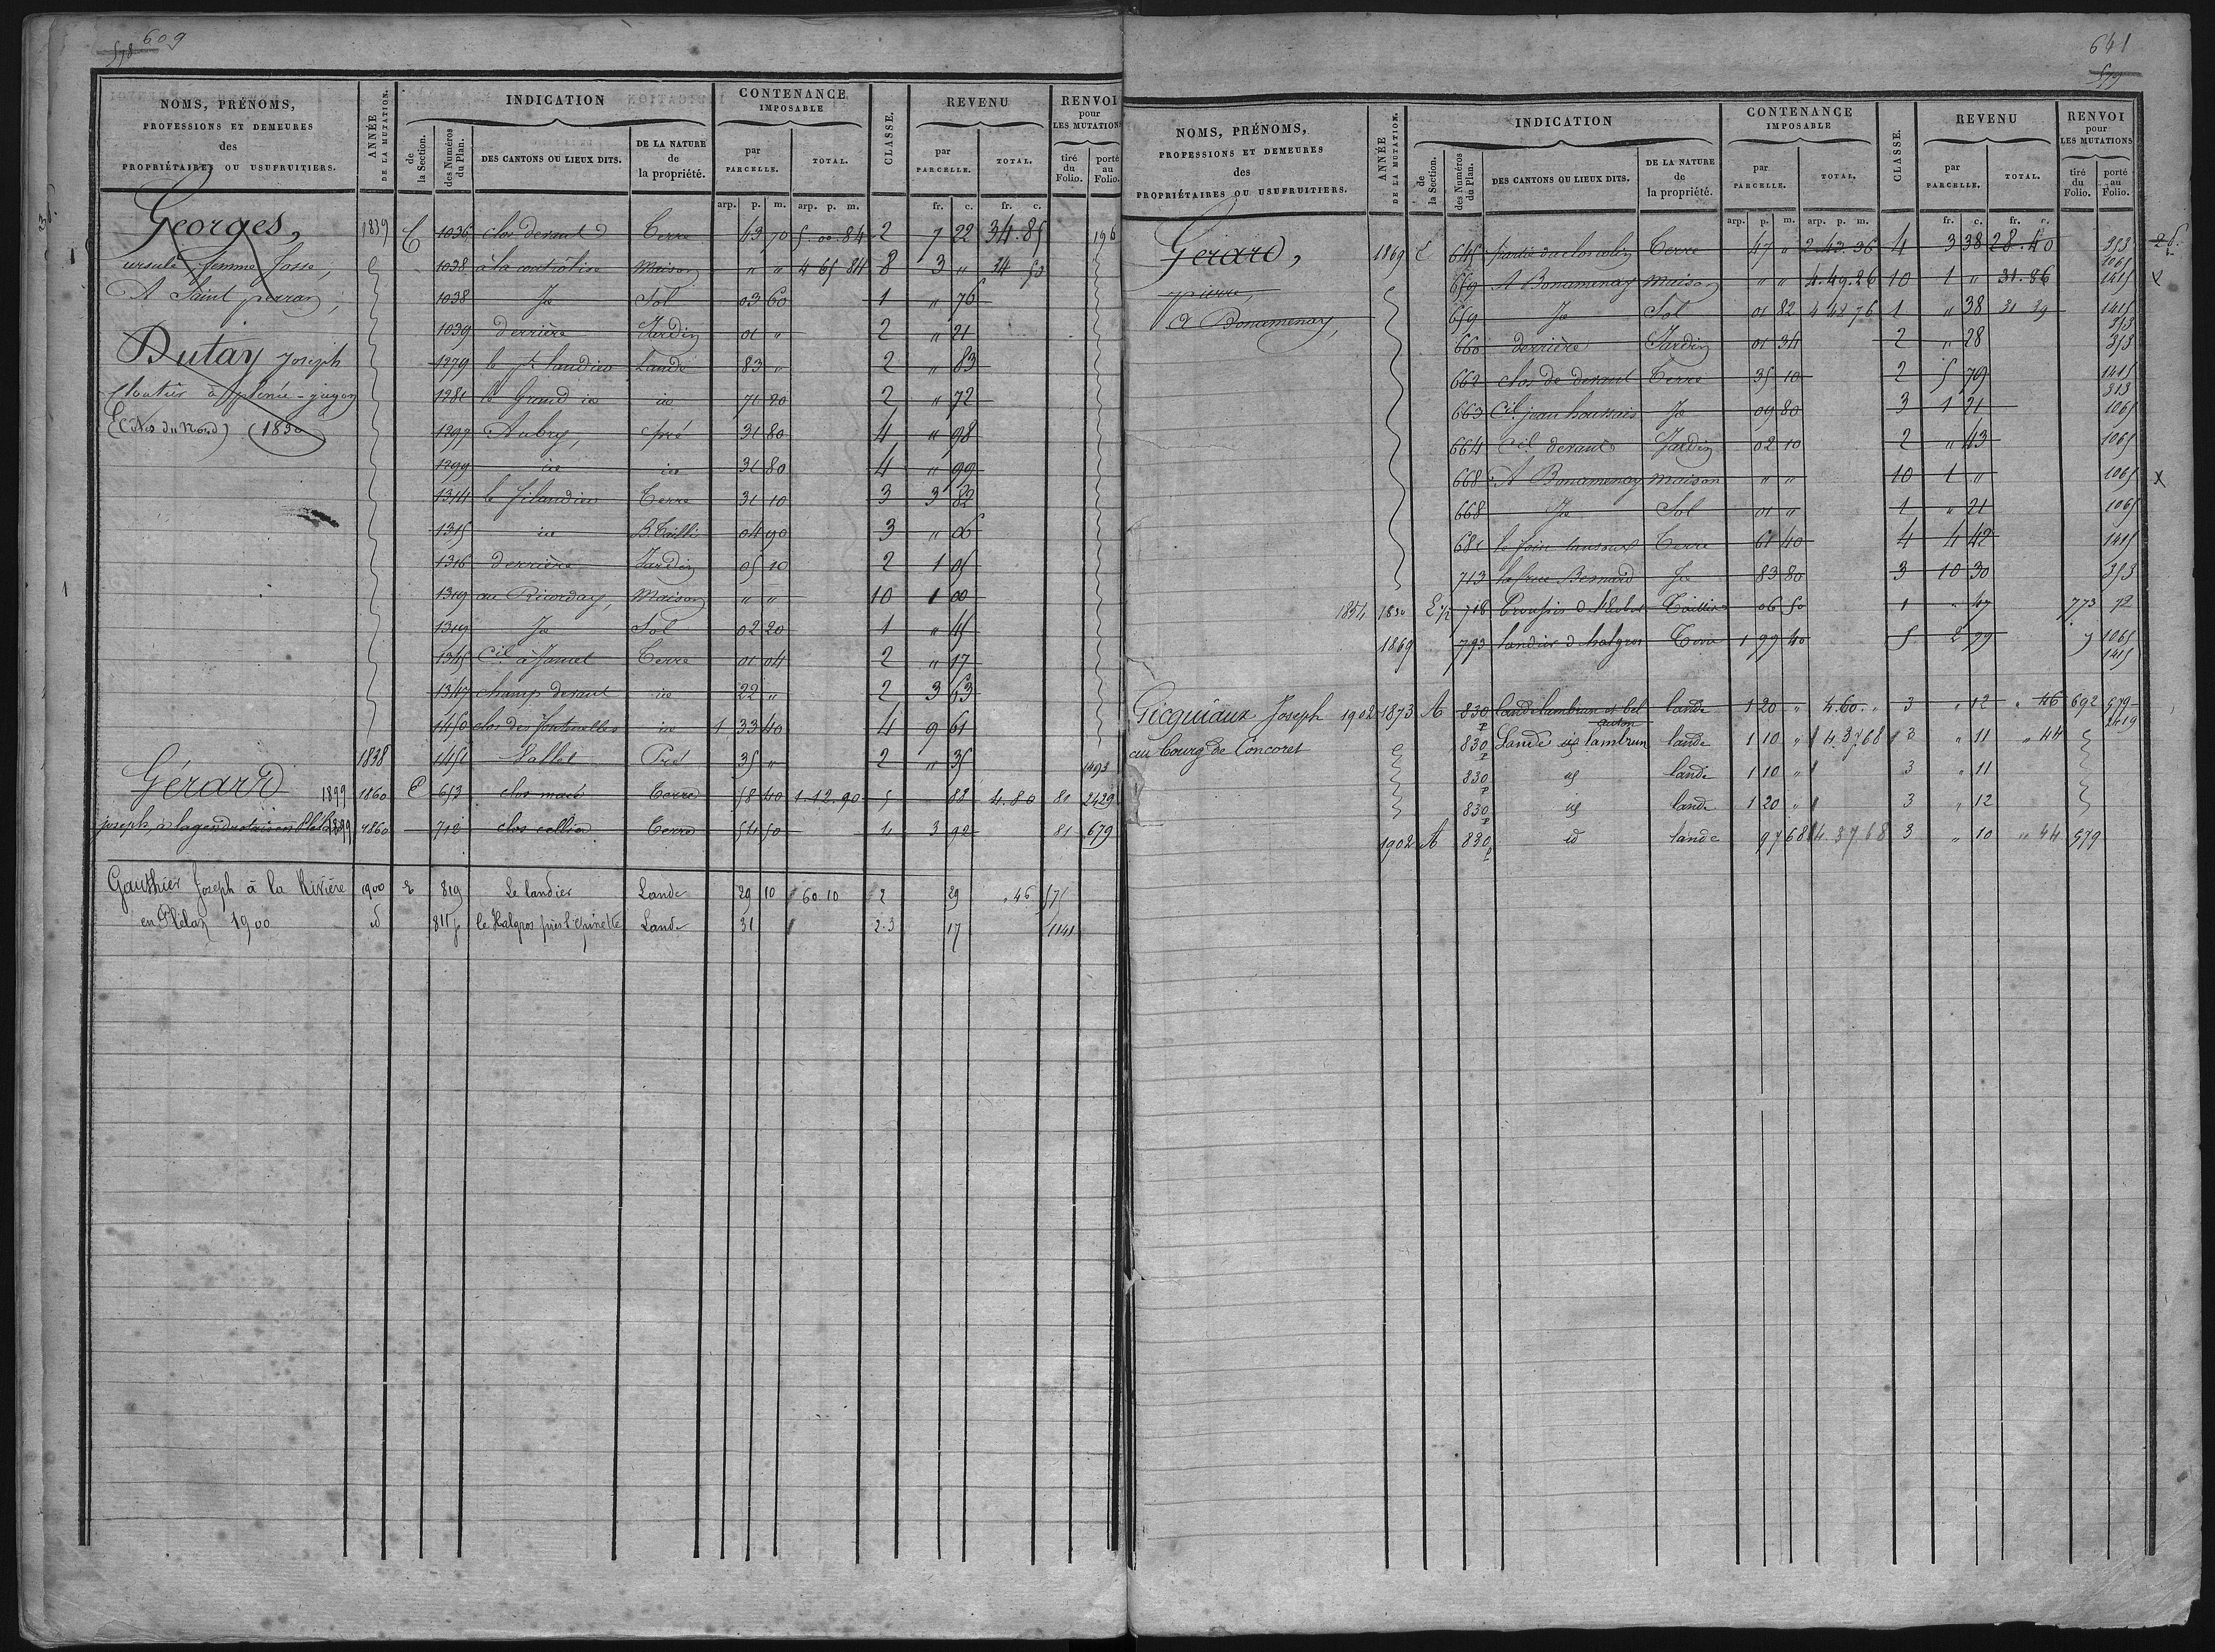 609
578
NOMS, PRÉNOMS, PROFESSIONS ET DEMEURES des PROPRIÉTAIRES OU USUFRUITIERS.
ANNÉE DE LA MUTATION.
INDICATION
de la Section.
des Numéros du Plan.
DES CANTONS OU LIEUX DITS.
DE LA NATURE de la propriété.
CONTENANCE IMPOSABLE
par PARCELLE.
TOTAL.
CLASSE.
REVENU
par PARCELLE.
TOTAL.
RENVOI pour LES MUTATIONS
tiré du Folio.
porté au Folio.
arp. p. m. arp. p. m. fr. c. fr. c.
Georges, 1839 C 1036 clos devant Terre 63 70 5.00.84 2 7 22 34.85 196
ursule femme Josse, 1038 Maison " " 4 65 84 8 3 " 34 50
A Saint perran, 1038 Id Sol 03 60 1 " 76
1039 derrière Jardin 01 " 2 " 21
Dutay Joseph 1279 Lande 83 " 2 " 83
à plénée-jugon 1281 le Grand id id 71 20 2 " 72
(Côtes du Nord) (1850) 1297 Aubry, pré 31 80 4 " 98
1299 id id 31 80 4 " 99
1314 Terre 31 10 3 3 82
1315 id B. Tailli 04 90 3 " 06
1316 derrière Jardin 05 10 2 1 05
1319 au Ricorday, Maison " " 10 1 00
1319 Id Sol 02 20 1 " 45
1345 Terre 01 04 2 " 17
1347 champ devant id 22 " 2 3 63
1450 clos des fontenelles id 1 33 40 4 9 61
1838 1451 Vallet Pré 35 " 2 " 35 1493
Gérard 1899 1860 C 653 clos macé Terre 58 40 1.12.90 5 88 4.80 81 2429
joseph, à 1899 1860 712 clos cellier Terre 54 50 4 3 92 81 679
Gauthier Joseph à la Rivière 1900 E 819 Le landier Lande 29 10 60 10 2 29 " 46 575
en Plélan 1900 id 811 le Halgros près l'épinette Lande 31 2.3 17 1141
641
579
NOMS, PRÉNOMS, PROFESSIONS ET DEMEURES des PROPRIÉTAIRES OU USUFRUITIERS.
ANNÉE DE LA MUTATION.
INDICATION
de la Section.
des Numéros du Plan.
DES CANTONS OU LIEUX DITS.
DE LA NATURE de la propriété.
CONTENANCE IMPOSABLE
par PARCELLE.
TOTAL.
CLASSE.
REVENU
par PARCELLE.
TOTAL.
RENVOI pour LES MUTATIONS
tiré du Folio.
porté au Folio.
arp. p. m. arp. p. m. fr. c. fr. c.
Gérard, 1869 E 645 Terre 47 " 2.43.36 4 3 38 28.40 353
1065
Pierre, 659 A Bonamenay Maison " " 4.49.26 10 1 " 31.86 1415 x
A Bonamenay, 659 Id Sol 01 82 4 48 76 1 " 38 31 39 1415
353
660 derrière Jardin 01 34 2 " 28 353
662 clos de devant Terre 35 10 2 5 79 1415
353
663 Cil jean houssais Id 09 80 3 1 21 1065
664 Cil devant Jardin 02 10 2 " 43 1065
668 A Bonamenay Maison " " 10 1 " 1065 x
668 Id Sol 01 " 1 " 21 1065
681 Terre 61 40 4 4 42 1415
713 Id 83 80 3 10 30 353
1854 1850 E 718 Taillis 06 50 1 " 47 773 72
1869 793 landier d'halgros Terre 1 99 40 5 2 99 1065
1415
Gicquiaux Joseph 1902 1873 A 830 p lande lambrun et bel lande 1 20 " 4.60. " 3 " 12 " 46 692 579
2419
au bourg de Concoret 830 p Lande lambrun lande 1 10 " 4.3768 3 " 11 " 44
830 p id lande 1 10 " 3 " 11
830 p id lande 1 20 " 3 " 12
1902 A 830 p id lande 97 68 4.3768 3 " 10 " 44 579